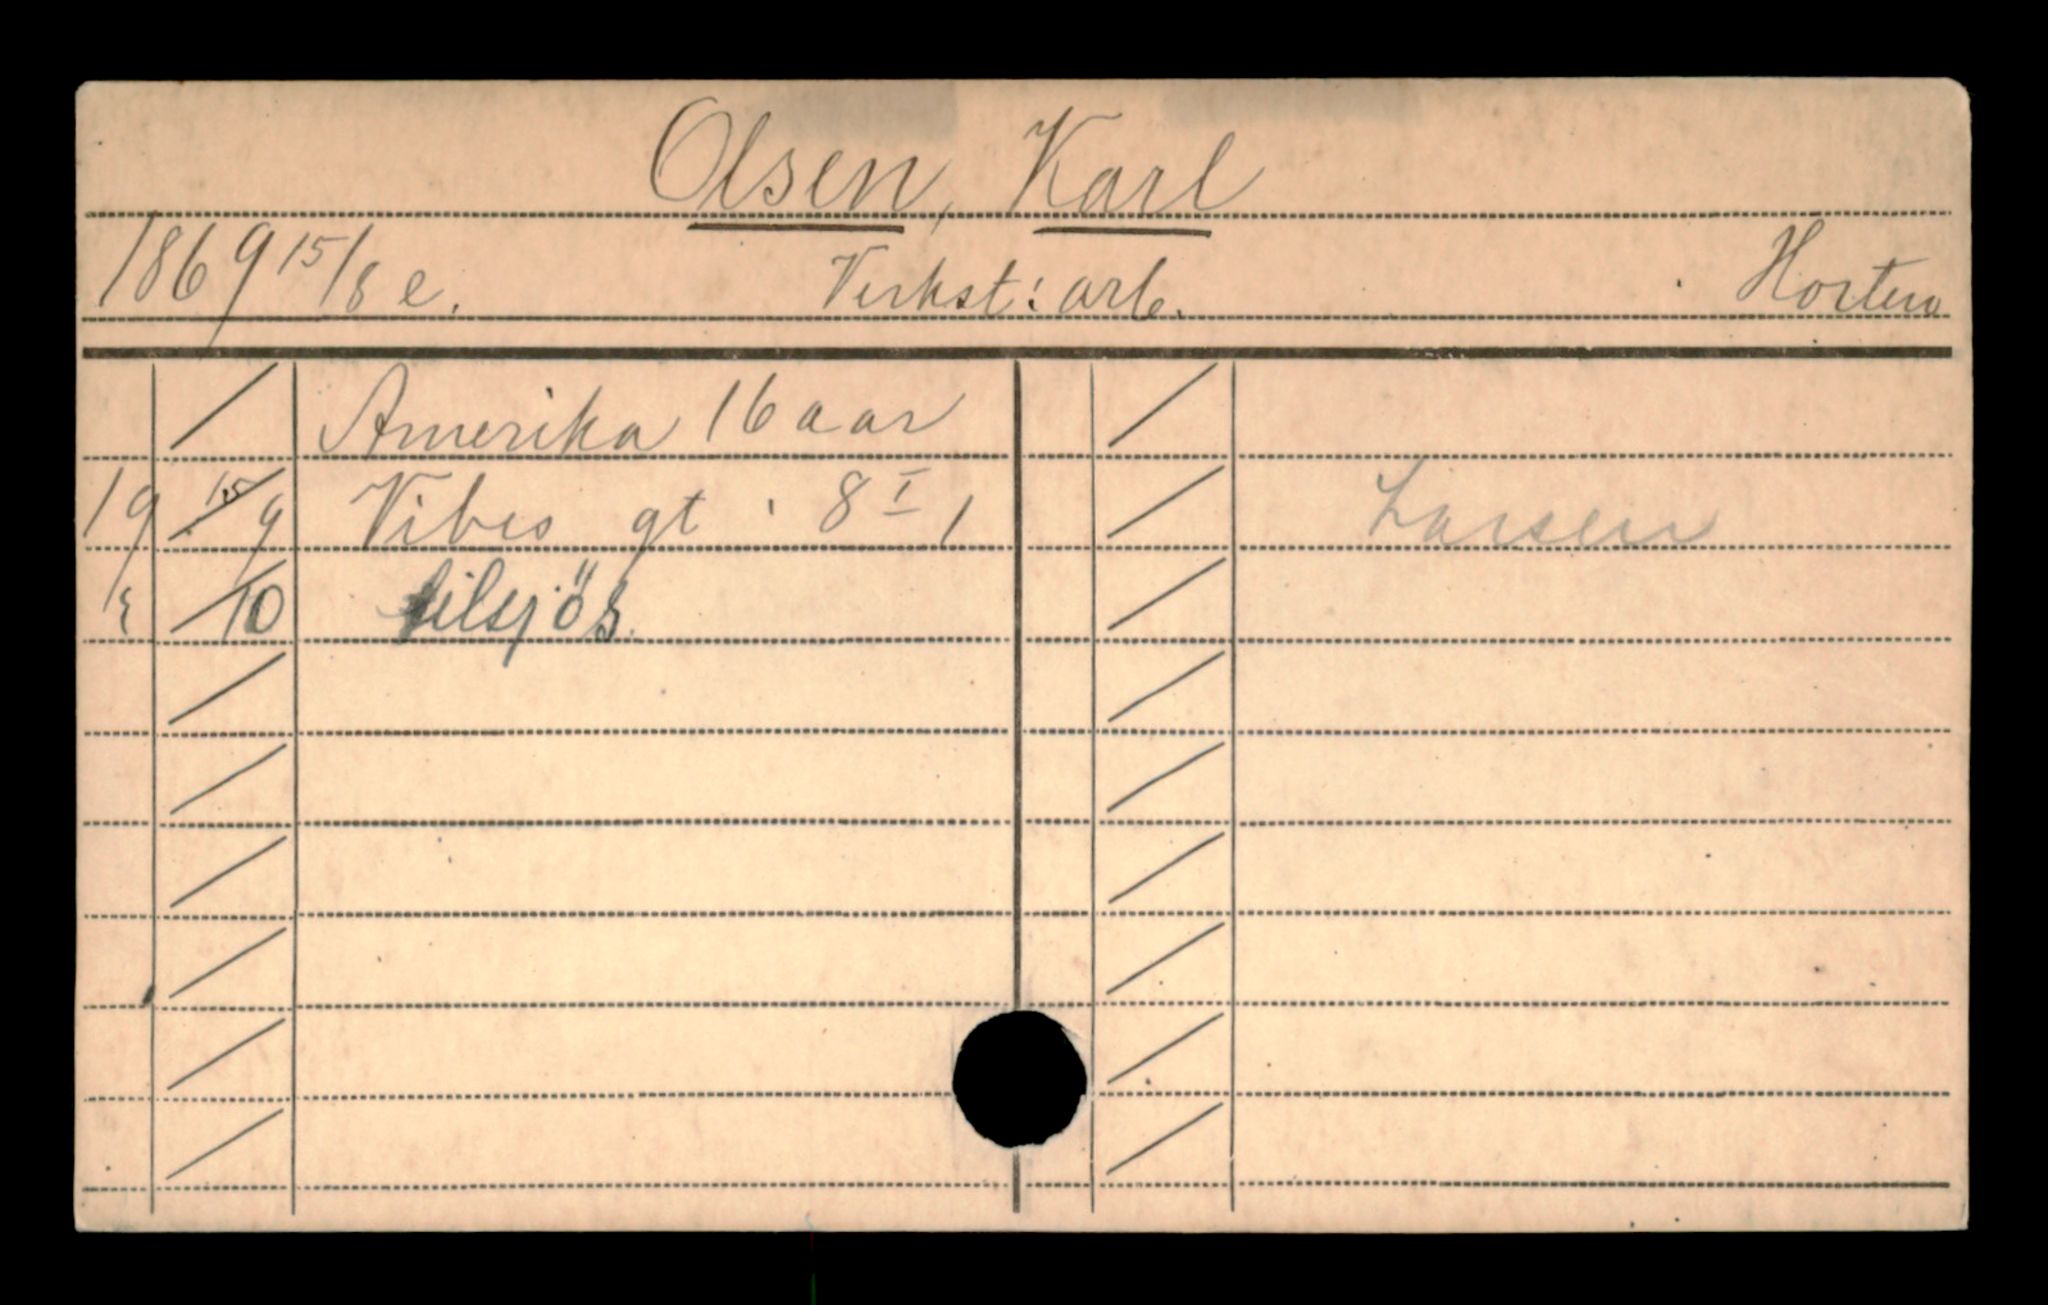 Olsen, Karl
1869 15/8 e. Verkst: arb. Horten
Amerika 16 aar
19 15/9 Vibes gt. 8 I 1 Larsen
/10 tilsjøs.